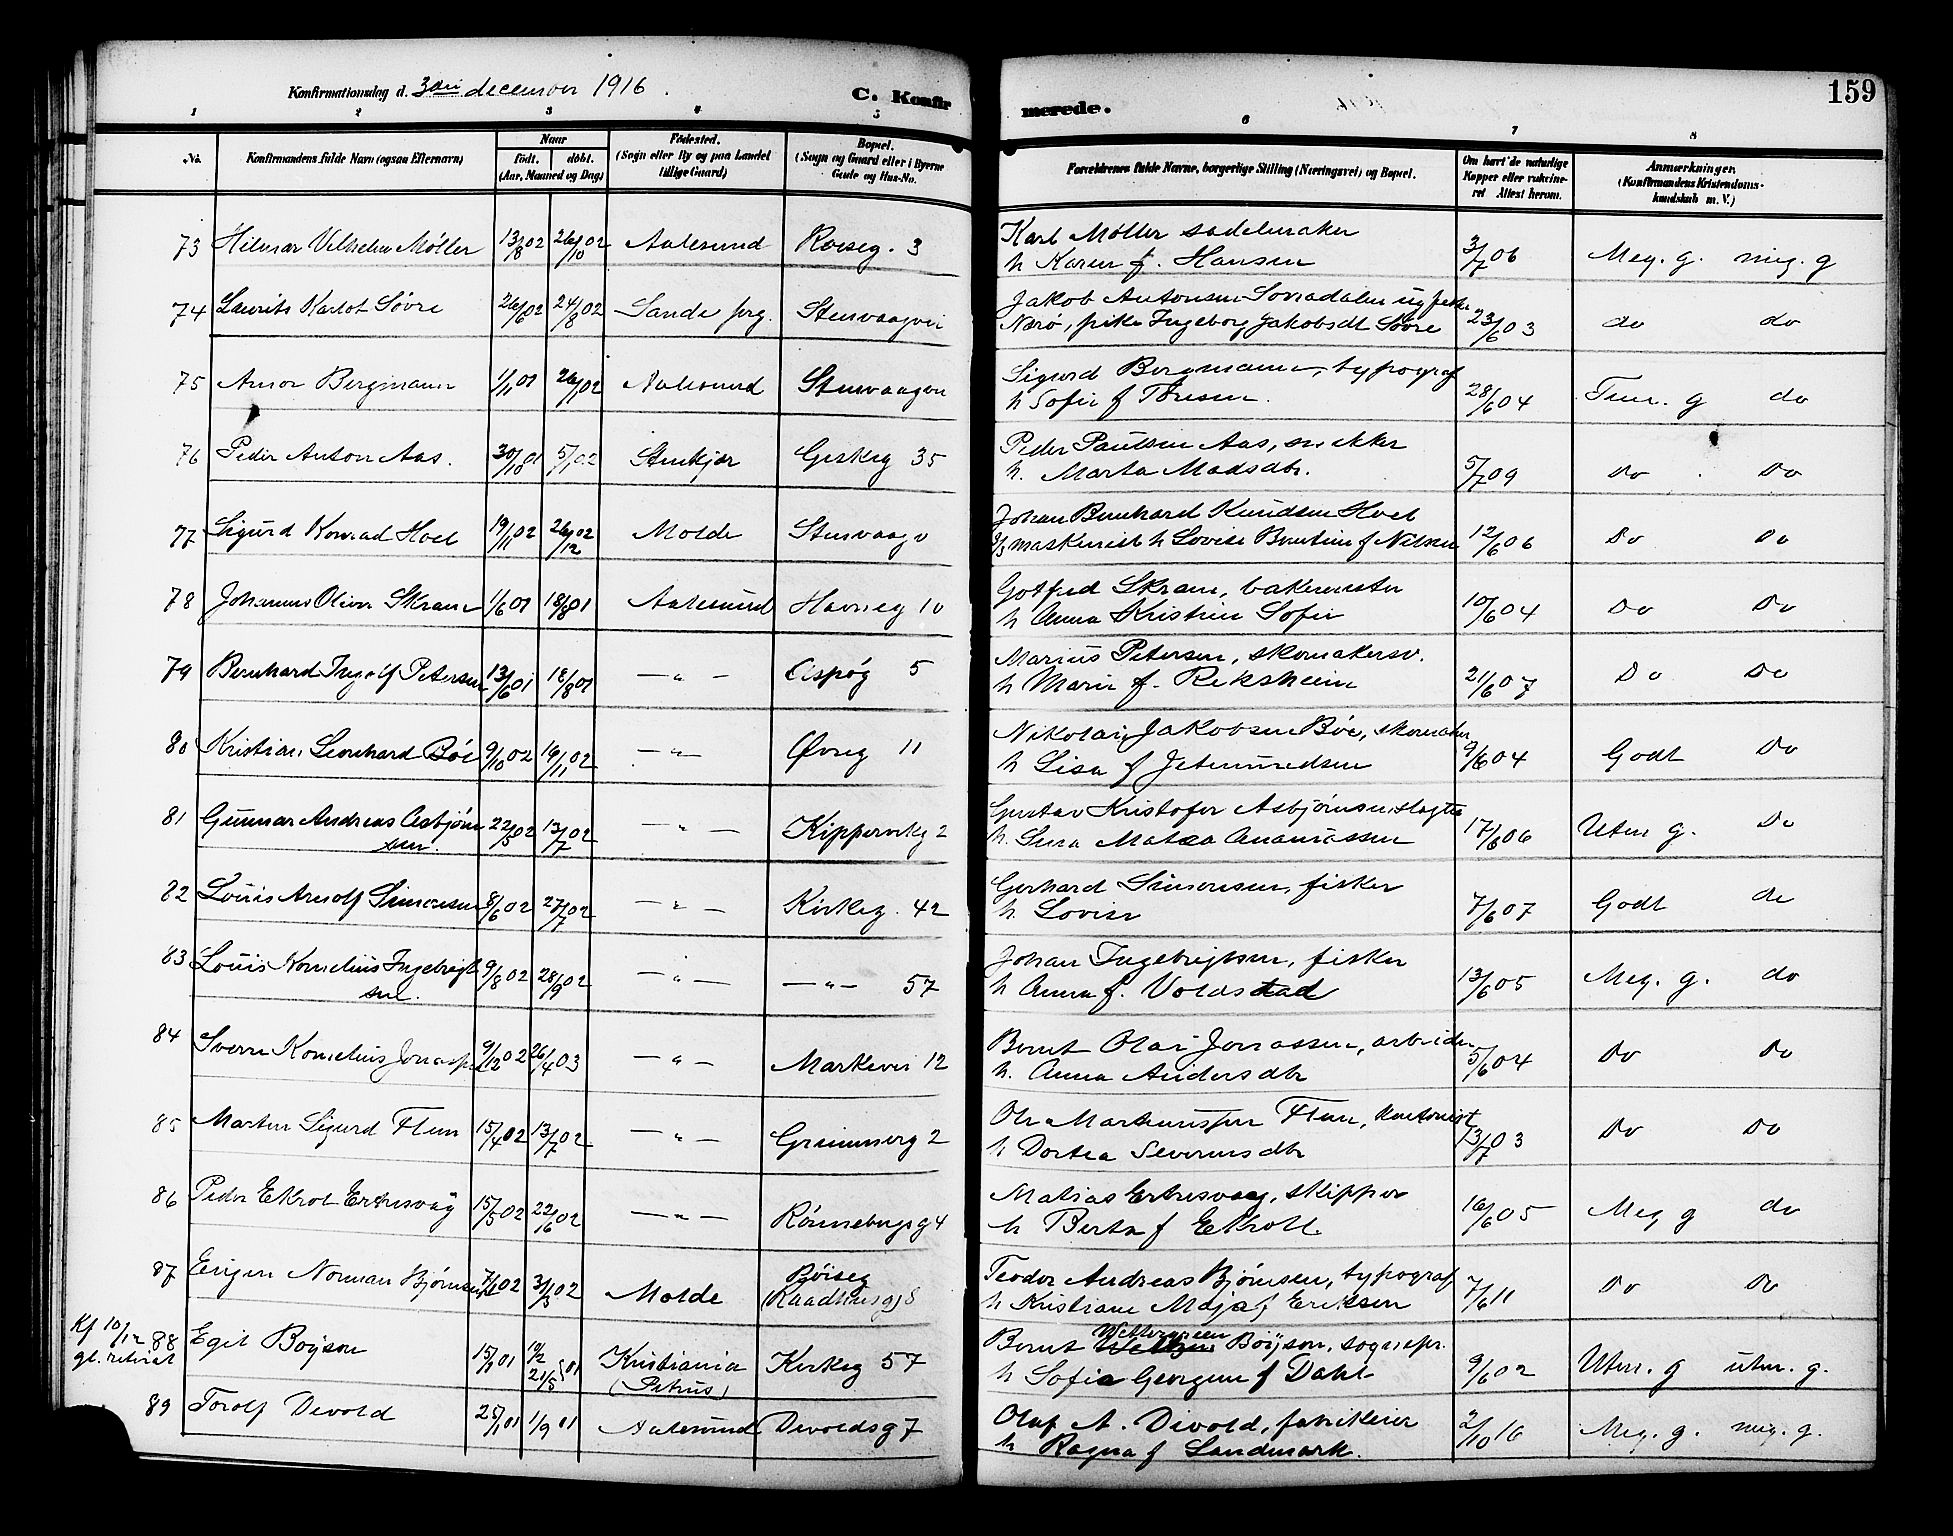 Konfirmationsdag d. 3die december 1916.
C. Konfirmerede.
159
1 2 3 4 5 6 7 8
No. Konfirmandens fulde Navn (ogsaa Efternavn) Naar født. døbt. (Aar, Maaned og Dag) Fødested. (Sogn eller By og paa Landet tillige Gaard) Bopæl. (Sogn og Gaard eller i Byerne Gade og Hus-No. Forældrenes fulde Navne, borgerlige Stilling (Næringsvei) og Bopæl. Om havt de naturlige Kopper eller vaksineret Attest herom. Anmærkninger. (Konfirmandens Kristendomskundskab m. V.)
73 Hilmar Vilhelm Møller 13/8 02 26/10 02 Aalesund Roeseg. 3 Karl Møller sadelmaker
h Karen f. Hansen 3/7 06 Meg. g. meg. g
74 Laurits Karlot Søvre 26/6 02 24/8 02 Sande prg. Stenvaagvei Jakob Antonsen
Nærø, pike Ingeborg Jakobsdt Søvre 23/6 03 do do
75 Arnor Bergmann 1/11 01 26/1 02 Aalesund Stenvaagvei Sigurd Bergmann, typograf
h Sofie f Toresen. 28/6 04 Tem. g do
76 Peder Anton Aas. 30/10 01 5/1 02 Stenkjær Geskeg 35 Peder Paulsen Aas, snekker
h. Marta Madsdtr. 5/7 09 Do Do
77 Sigurd Konrad Hoel 19/11 02 26/12 02 Molde Stenvaagv Johan Bernhard Knudsen Hoel
maskinist h Lovise Bentine f Nilsen 12/6 06 Do Do
78 Johannes Oliver Skram 1/6 01 18/8 01 Aalesund Havneg 10 Gotfred Skram, bakermester
h Anna Kristine Sofie 10/6 04 Do Do
79 Bernhard Ingolf Petersen 13/6 01 18/8 01 — " — Aspøg 5 Marius Petersen, skomakersv.
h Marie f. Reksheim 21/6 07 Do Do
80 Kristian Leonhard Bøe 9/10 02 16/11 02 — " — Øvreg 11 Nikolai Jakobsen Bøe, skomaker
h Lisa f Jetmundsen 9/6 04 Godt Do
81 Gunnar Andreas Asbjørnsen 22/5 02 13/7 02 — " — Kippervikg 2 Gustav Kristofer Asbjørnsen, slagter
h. Lina Matea Ananiassen 17/6 06 Utm g. Do
82 Louis Arnolf Simonsen 8/6 02 27/7 02 — " — Kirkeg. 42 Gerhard Simonsen, fisker
h. Lovise 7/6 07 Godt do
83 Louis Kornelius Ingebrigtsen. 9/8 02 28/9 02 — " — — " — 57 Johan Ingebrigtsen, fisker
h Anna f. Voldstad 13/6 05 Meg. g. do
84 Sverre Kornelius Jonassen 9/12 02 26/4 03 — " — Markevei 12 Bernt Olai Jonassen, arbeider
h. Anna Andersdtr 5/6 04 Do Do
85 Martin Sigurd Flem 15/4 02 13/7 02 — " — Grimmerg 2 Ole Martinussen Flem, kontorist
h Dortea Severinsdtr 13/7 03 Do Do
86 Peder Ekrol Ertresvåg 15/5 02 22/16 02 — " — Rønnebergsg 4 Matias Ertresvaag, skipper
h Berta f Ekroll. 16/6 05 Meg g do
87 Eugen Norman Bjørnsen 7/1 02 31/3 02 Molde Bøiseg
(Raadhusg) 8 Teodor Andreas Bjørnsen, typograf
h Kristiane Maja f Eriksen 7/6 11 Do Do
Kf 10/12
88 Egil Boyson 15/1 01 21/5 01 Kristiania
(Petrus) Kirkeg 57 Bernt Wettergreen Böyson, sognepr.
h Sofie Georgine f Dahl 9/6 02 Utm. g utm. g.
89 Torolf Devold 25/1 01 1/9 01 Aalesund Devoldsg 7 Olaf A. Devold, fabrikeier
h Ragna f Landmark. 2/10 16 Meg. g. meg. g.